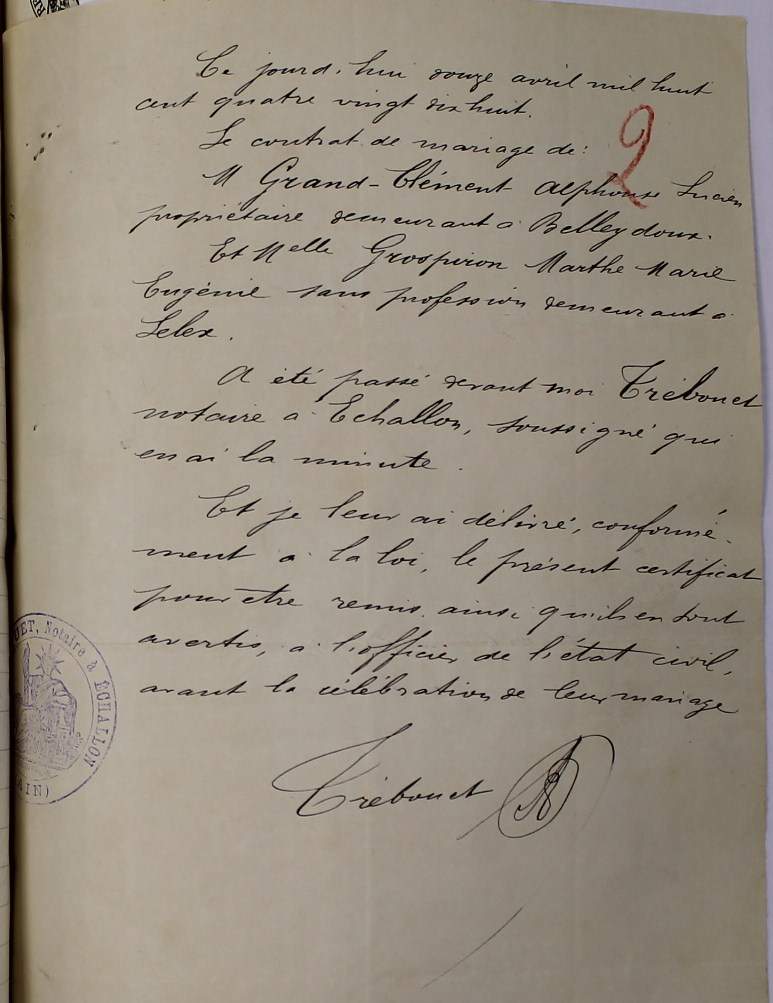 Ce jourd'hui douze avril mil huit
cent quatre vingt dix huit.
Le contrat de mariage de :
2
M Grand-Clément Alphonse Lucien
propriétaire demeurant à Belleydoux.
Et Melle Grospiron Marthe Marie
Eugénie sans profession demeurant à
Lelex.
A été passé devant moi Trébouet
notaire à Echallon, soussigné qui
en ai la minute.
Et je leur ai délivré, conformé-
ment à la loi, le présent certificat
pour être remis ainsi qu'ils en sont
avertis, à l'officier de l'état civil,
avant la célébration de leur mariage
Trébouet
UET, Notaire à ECHALLON
(AIN)